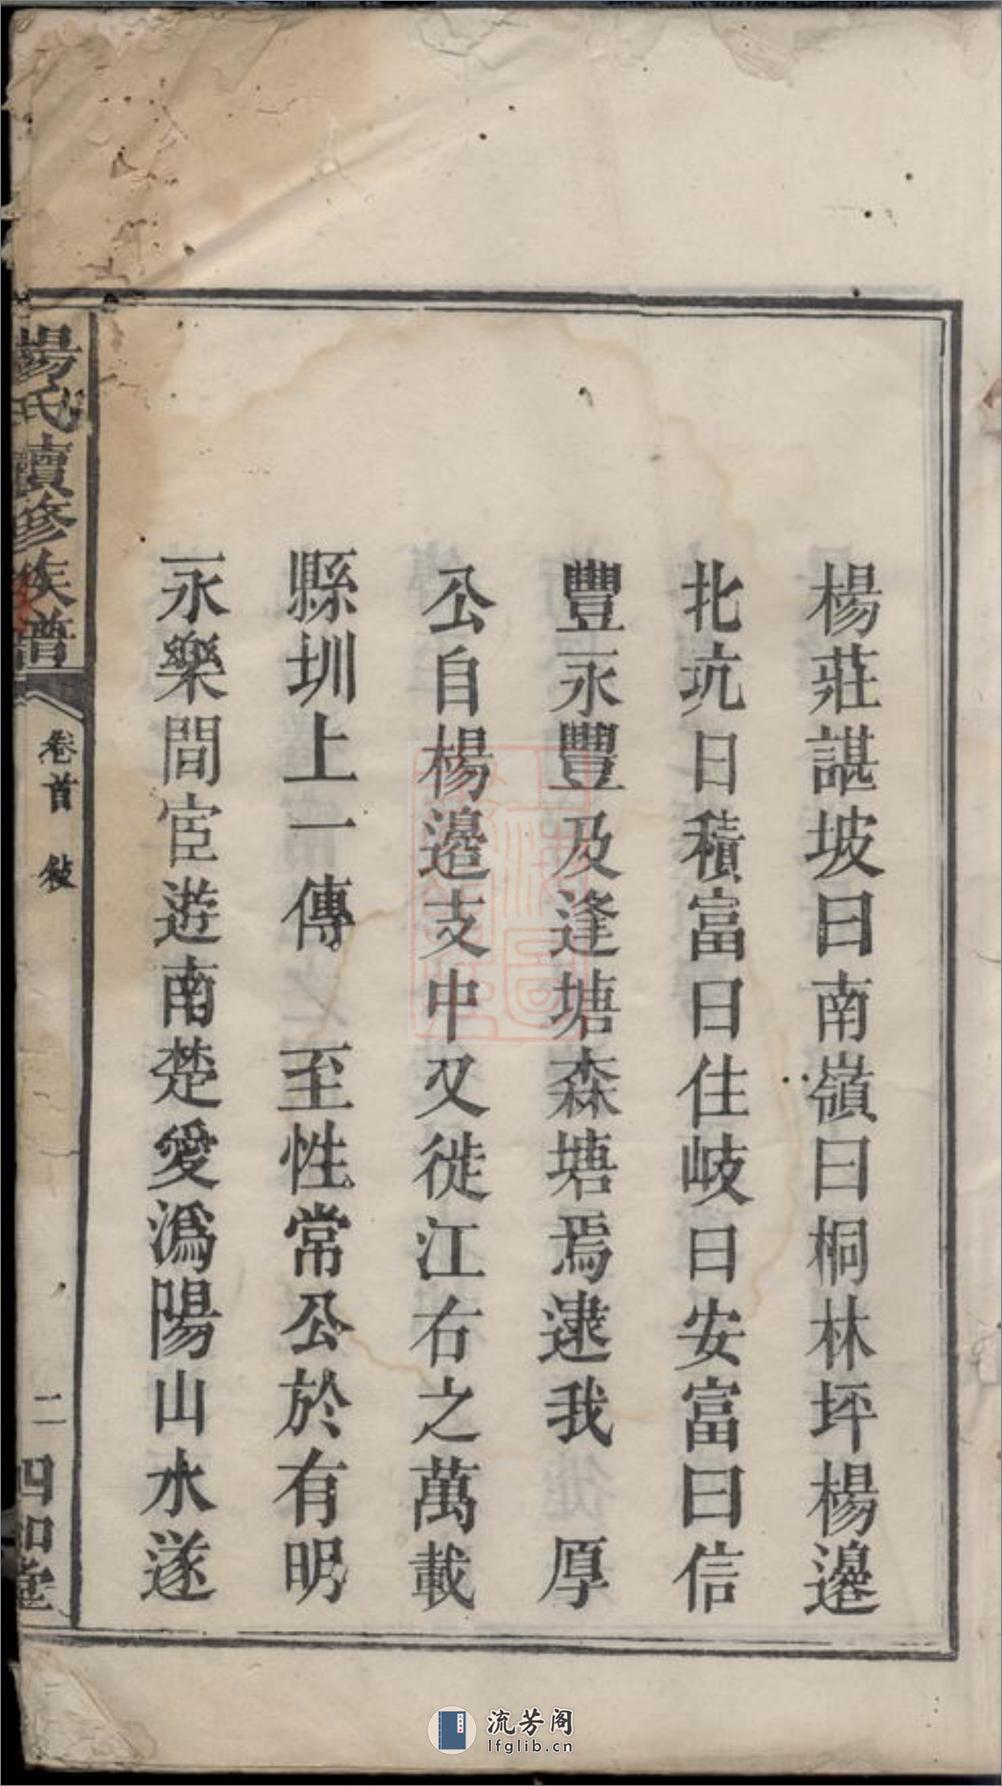 楊莊諶坡曰南嶺曰桐林坪楊邊
北坑曰積富曰住岐曰安富曰信
豐永豐及逢塘森塘焉逮我 厚
公自楊邊支中又徙江右之萬載
縣圳上一傳 至性常公於有明
永樂間宦遊南楚愛溈陽山水遂
楊氏續修族譜
卷首 敍
二
四知堂
流芳阁
lfglib.cn